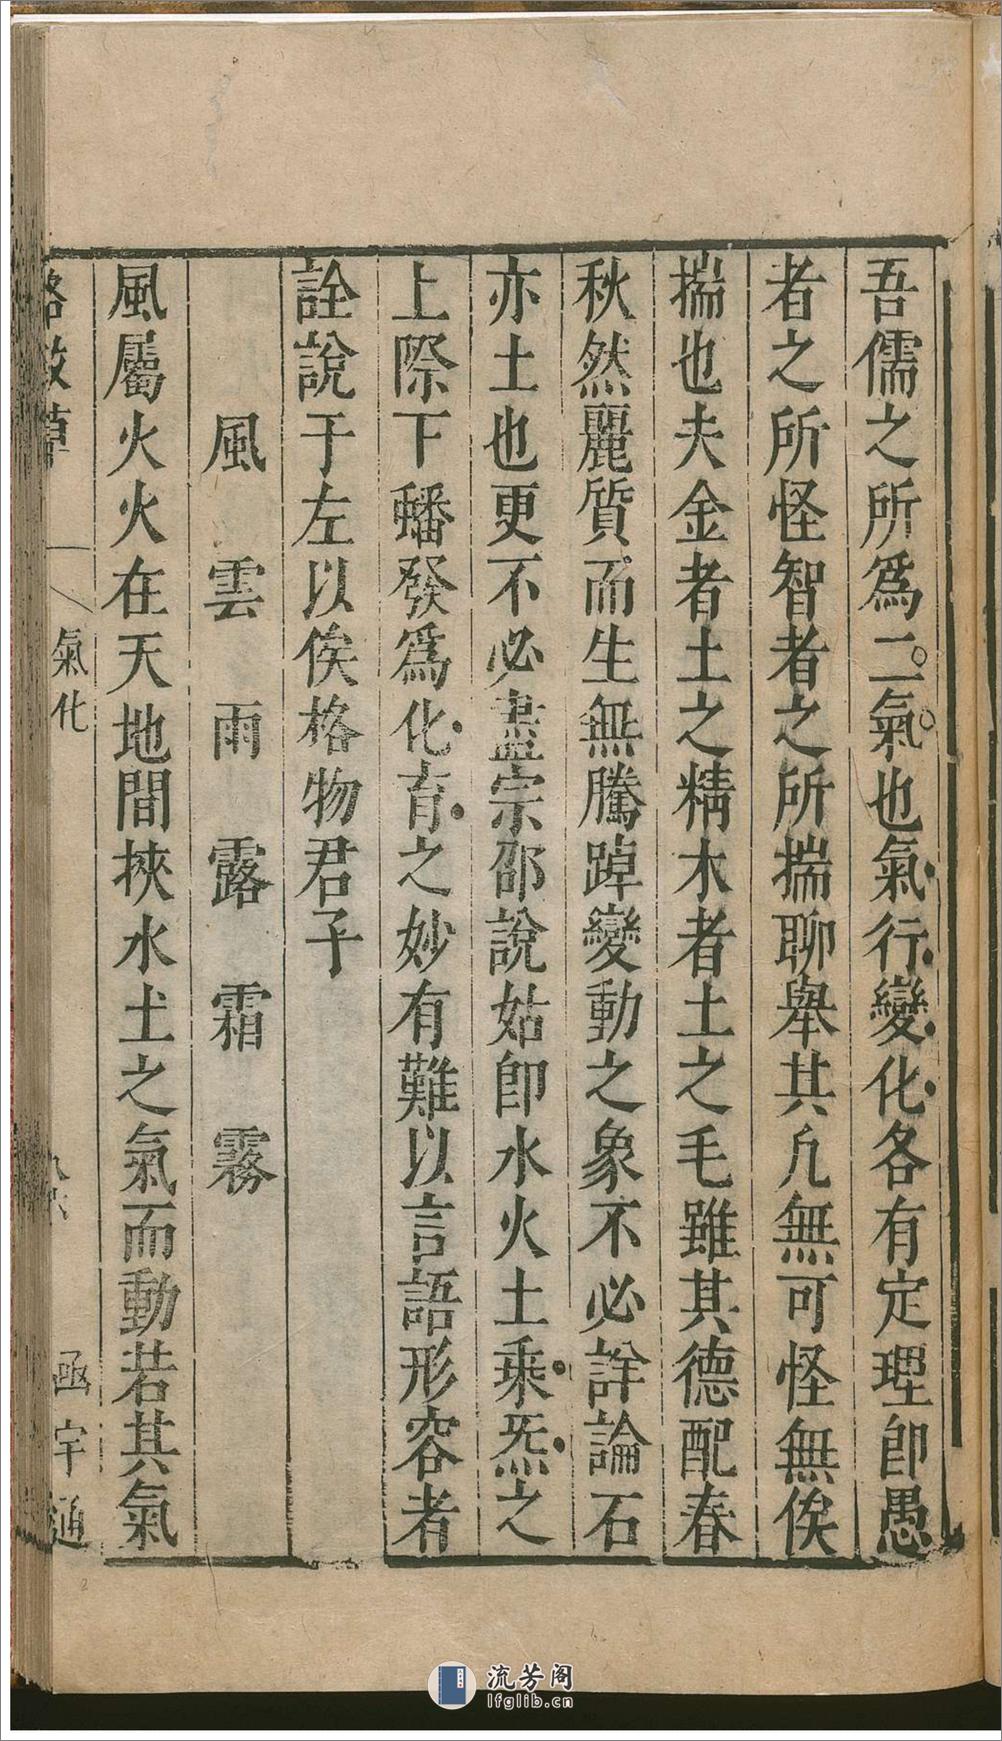 吾儒之所爲二氣也氣行變化各有定理卽愚
者之所怪智者之所揣聊舉其凡無可怪無俟
揣也夫金者土之精木者土之毛雖其德配春
秋然麗質而生無騰踔變動之象不必詳論石
亦土也更不必盡宗邵說姑卽水火土乘炁之
上際下蟠發爲化育之妙有難以言語形容者
詮說于左以俟格物君子
風雲雨露霜霧
風屬火火在天地間挾水土之氣而動若其氣
格致草
氣化
函宇通
流芳阁
lfglib.cn